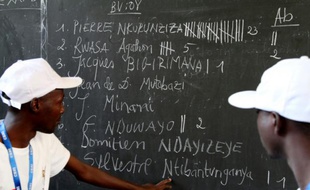 BV:04 Ab
1. PIERRE NKURUNZIZA 23
2. RWASA Agathon 5
3. Jacques BIGIRIMANA 1
J Minani
F NDUWAYO 2
Domitien NDAYIZEYE
Sylvestre Ntibantunganya